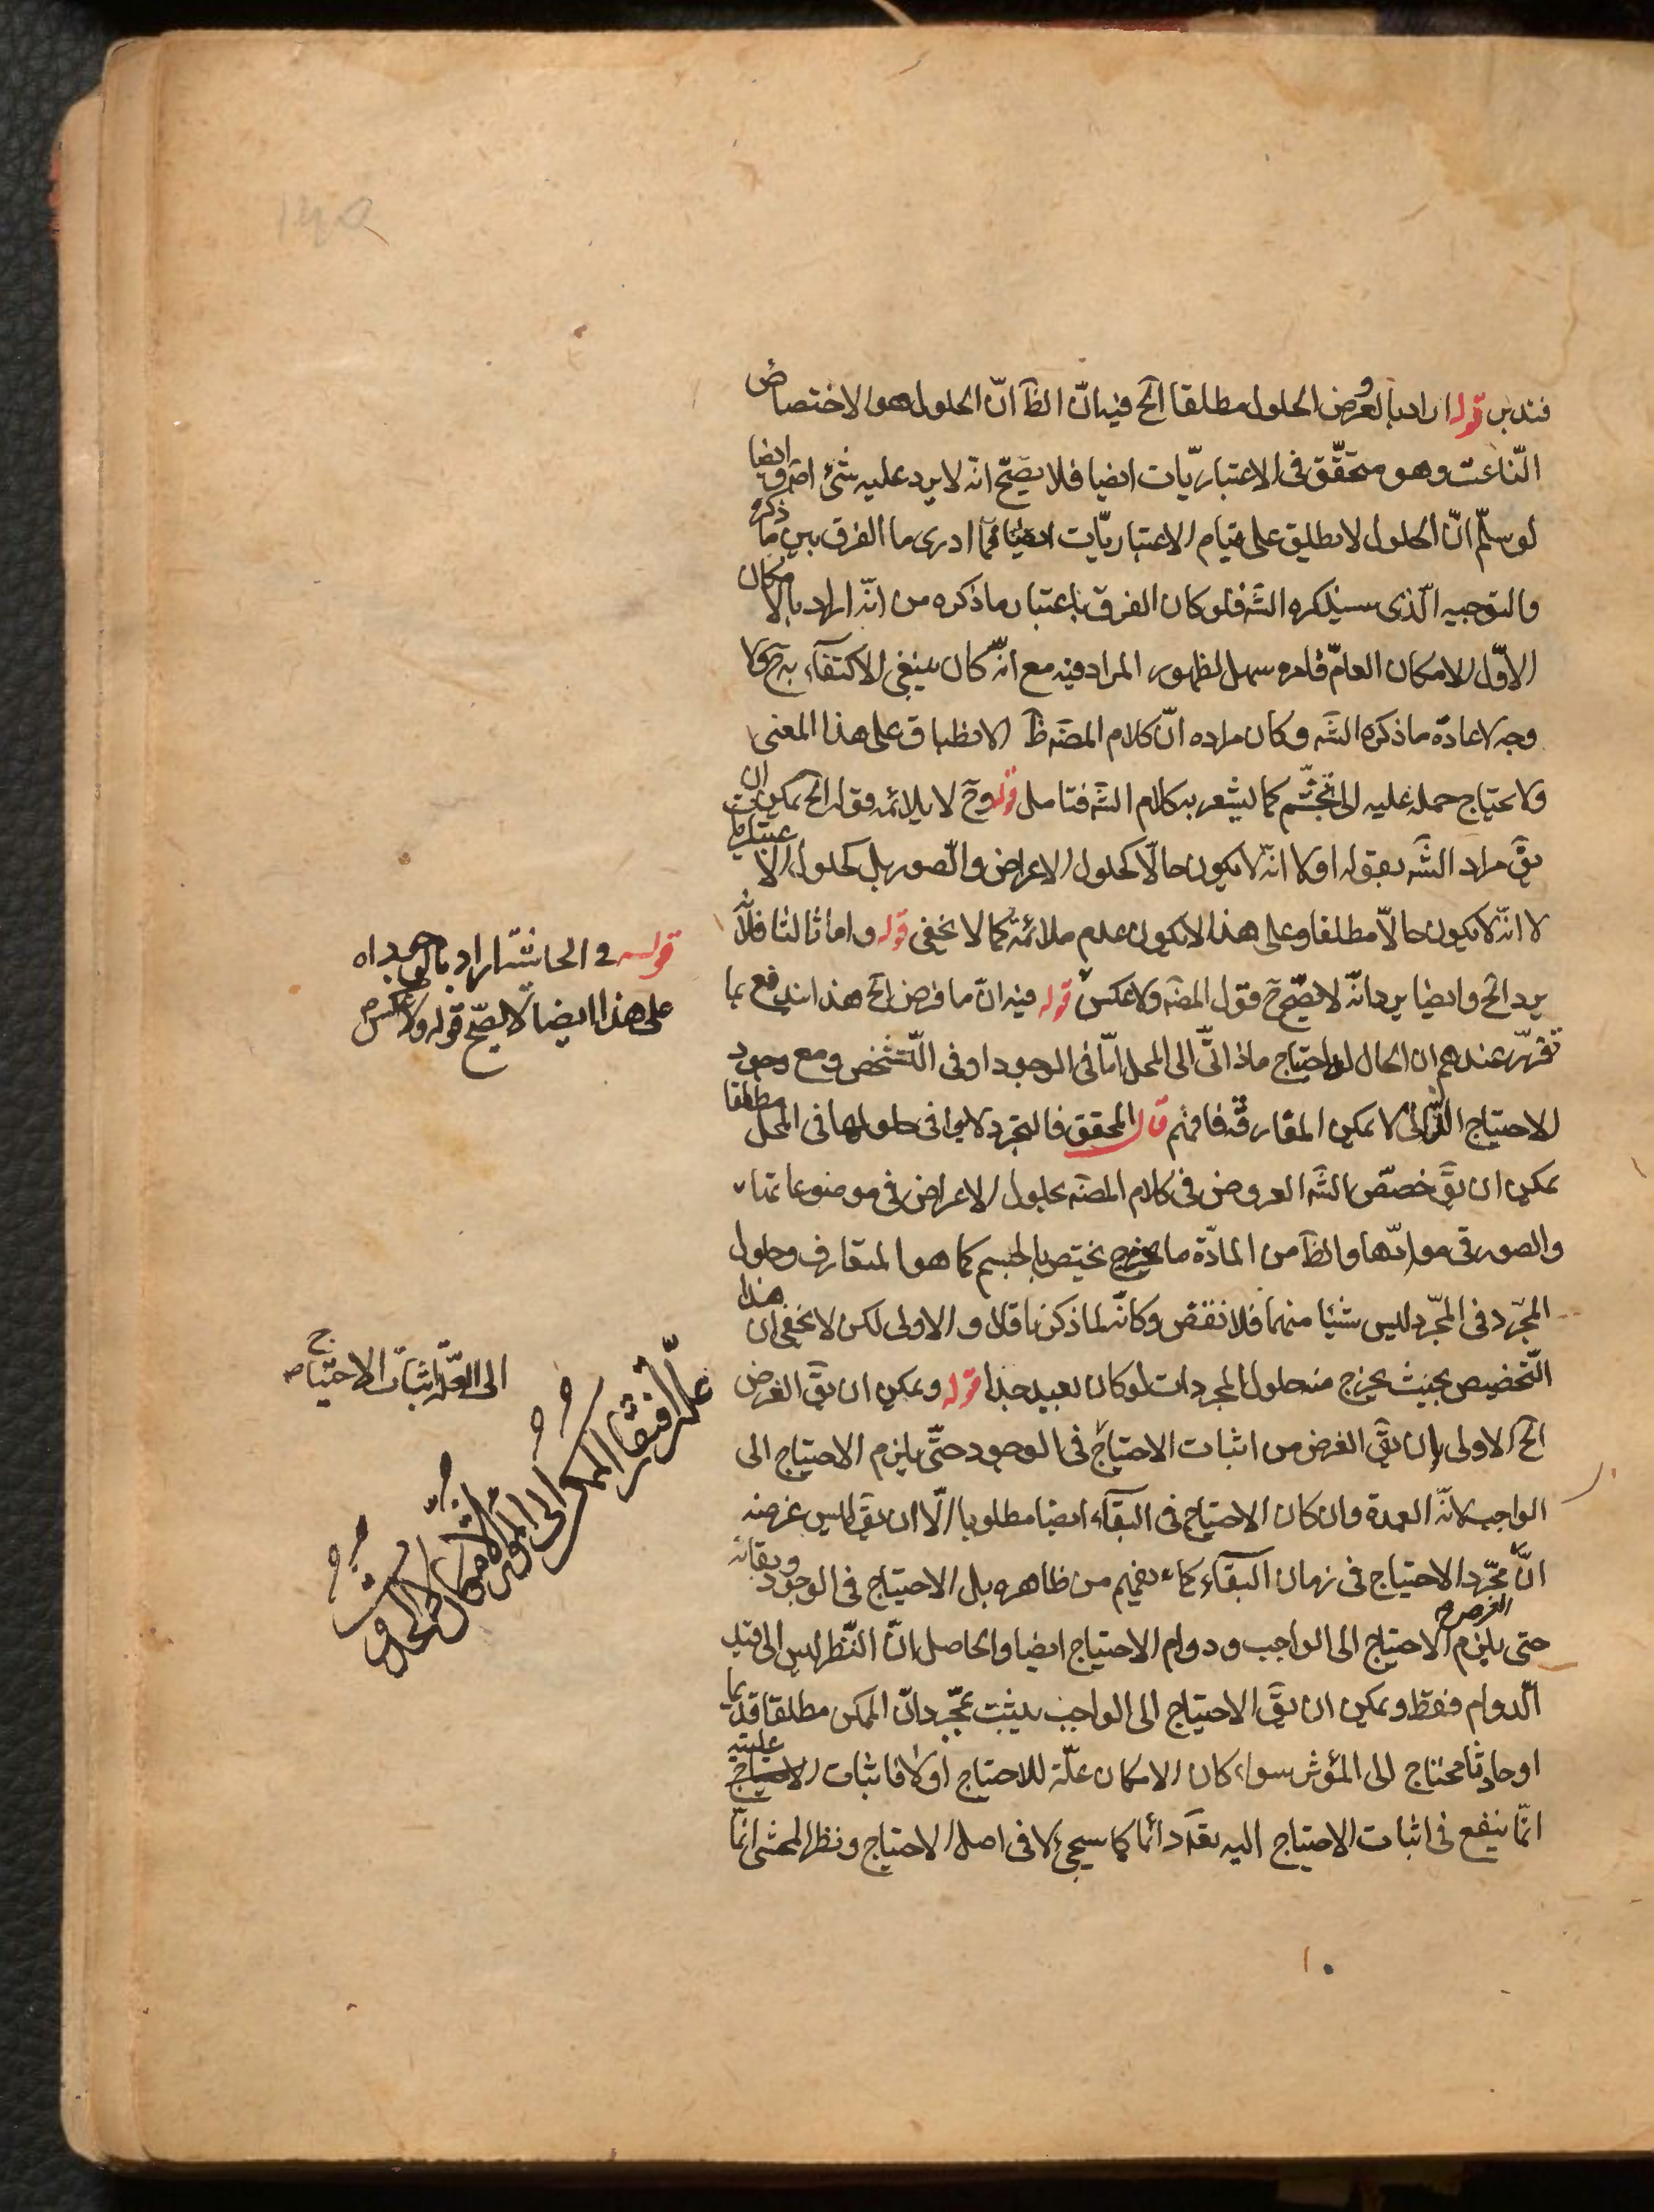 فتدبر قوله اراد بالعروض الحلول مطلقا الخ فيه انّ الظآ انّ الحلول هو الاختصاص
النّاعت وهو متحقّق فى الاعتباريّات ايضا فلا يصّح انّه لا يرد عليه شئ اصلا وايضا
لو سلّم انّ الحلول لا يطلق على قيام الاعتباريّات ايضا فما ادرى ما الفرق بين ما ذكره
والتوجيه الّذى سيذكره الشّه فلو كان الفرق باعتبار ما ذكره من انّه اراد بالامكان
الاوّل الامكان العامّ فامره سهل لظهور المراد فيه مع انّه كان ينبغى الاكتفآء به ولا
وجه لاعادة ما ذكره الشّه وكان مراده انّ كلام المصّه ظآ الانطباق على هذا المعنى
ولا يحتاج حمله عليه الى تجشّم كما يشعر به كلام الشّه فتامل قوله وحّ لا يلائمه قوله الخ يمكن ان
يقّ مراد الشّه بقوله اولا انّه لا يكون حالّا كحلول الاعراض والصور بل كحلول الاعتباريات
لا انّه لا يكون حالّا مطلقا وعلى هذا لا يكون عدم ملائمة كما لا يخفى قوله واما ثالثا فلانّه
يرد الخ وايضا يرد انّه لا يصّح حّ قول المصّه ولا عكس قوله فيه انّ ما فرض الخ هذا اندفع بما
تقرّر عندهم ان الحال له احتياج ذاتىّ الى المحل امّا فى الوجود او فى التّشخّص ومع وجود
الاحتياج الذّاتى لا يمكن المفارقة فافهم قال المحقق فالتجرد لا ينافى حلولها فى المحل مطلقا
يمكن ان يقّ خصّص الشّه العروض فى كلام المصّه بحلول الاعراض فى موضوعاتها
والصور فى موادّها والظآ من المادّة ما يختص بالجسم كما هو المتعارف وحلول
المجّرد فى المجّرد ليس شيئا منهما فلا نقض وكانّه لما ذكرنا قال والاولى لكن لا يخفى ان هذا
التّخصيص بحيث يخرج منه حلول المجردات لو كان بعيد جدا قوله ويمكن ان يقّ الغرض
الخ الاولى ان يقّ الغرض من اثبات الاحتياج فى الوجود حتّى يلزم الاحتياج الى
الواجب لانّه العمدة وان كان الاحتياج فى البقآء ايضا مطلوبا الّا ان يقّ ليس غرضه
انّ مجّرد الاحتياج فى زمان البقآء كما يفهم من ظاهره بل الاحتياج فى الوجود وبقائه
حتى يلزم الاحتياج الى الواجب ودوام الاحتياج ايضا والحاصل انّ النّظر ليس الى قيد
الدوام فقط ويمكن ان يقّ الاحتياج الى الواجب يثبت بمجّرد انّ الممكن مطلقا قديما
او حادثا محتاج الى المؤثر سواء كان الامكان علّة للاحتياج اولا فاثبات عليته
انّما ينفع فى اثبات الاحتياج اليه تعّ دائما كما سيجئ لا فى اصل الاحتياج ونظر المحشى انّما
قوله فى الحاشية اراد بالوجه
على هذا ايضا لا يصّح قوله ولا عكس
الى العلّة اثبات الاحتياج
علّة افتقار الممكن الى المؤثر
الامكان